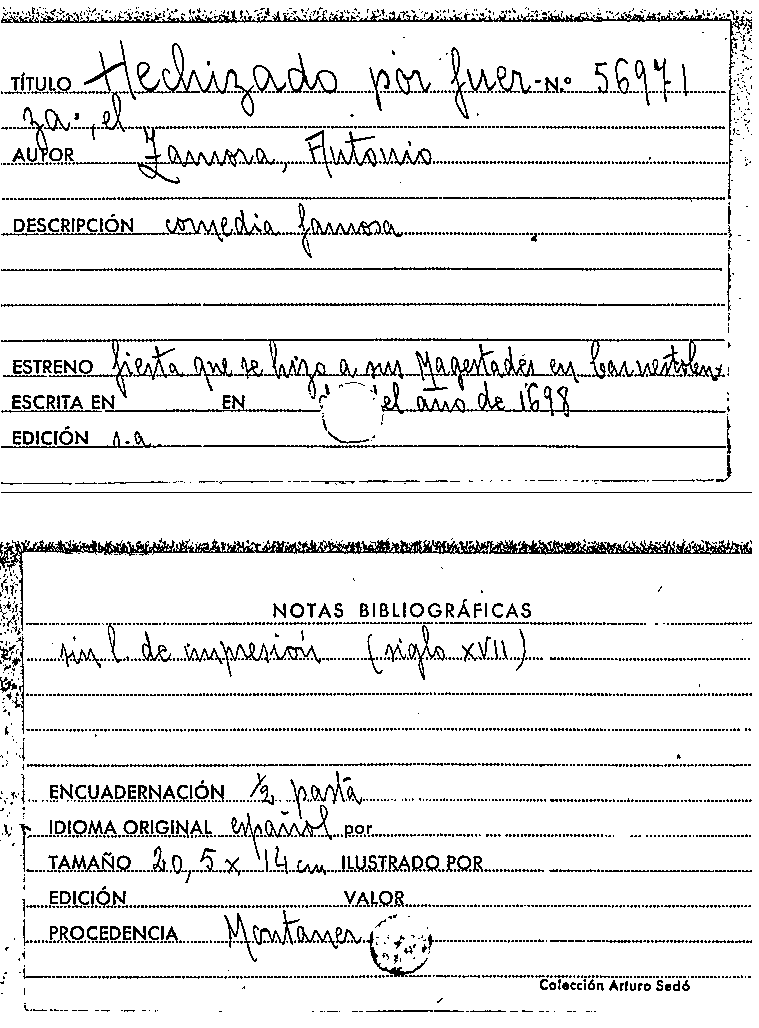 TÍTULO Hechizado por fuer- N.º 56971
za., el
AUTOR Zamora, Antonio
DESCRIPCIÓN comedia famosa
ESTRENO fiesta que se hizo a sus Magestades en Carnestolen
ESCRITA EN EN el año de 1698
EDICIÓN s.a.
NOTAS BIBLIOGRÁFICAS
sin l. de impresión (siglo XVII)
ENCUADERNACIÓN ½ pasta
IDIOMA ORIGINAL español por
TAMAÑO 20,5 x 14 cm ILUSTRADO POR
EDICIÓN VALOR
PROCEDENCIA Montaner
Colección Arturo Sedó